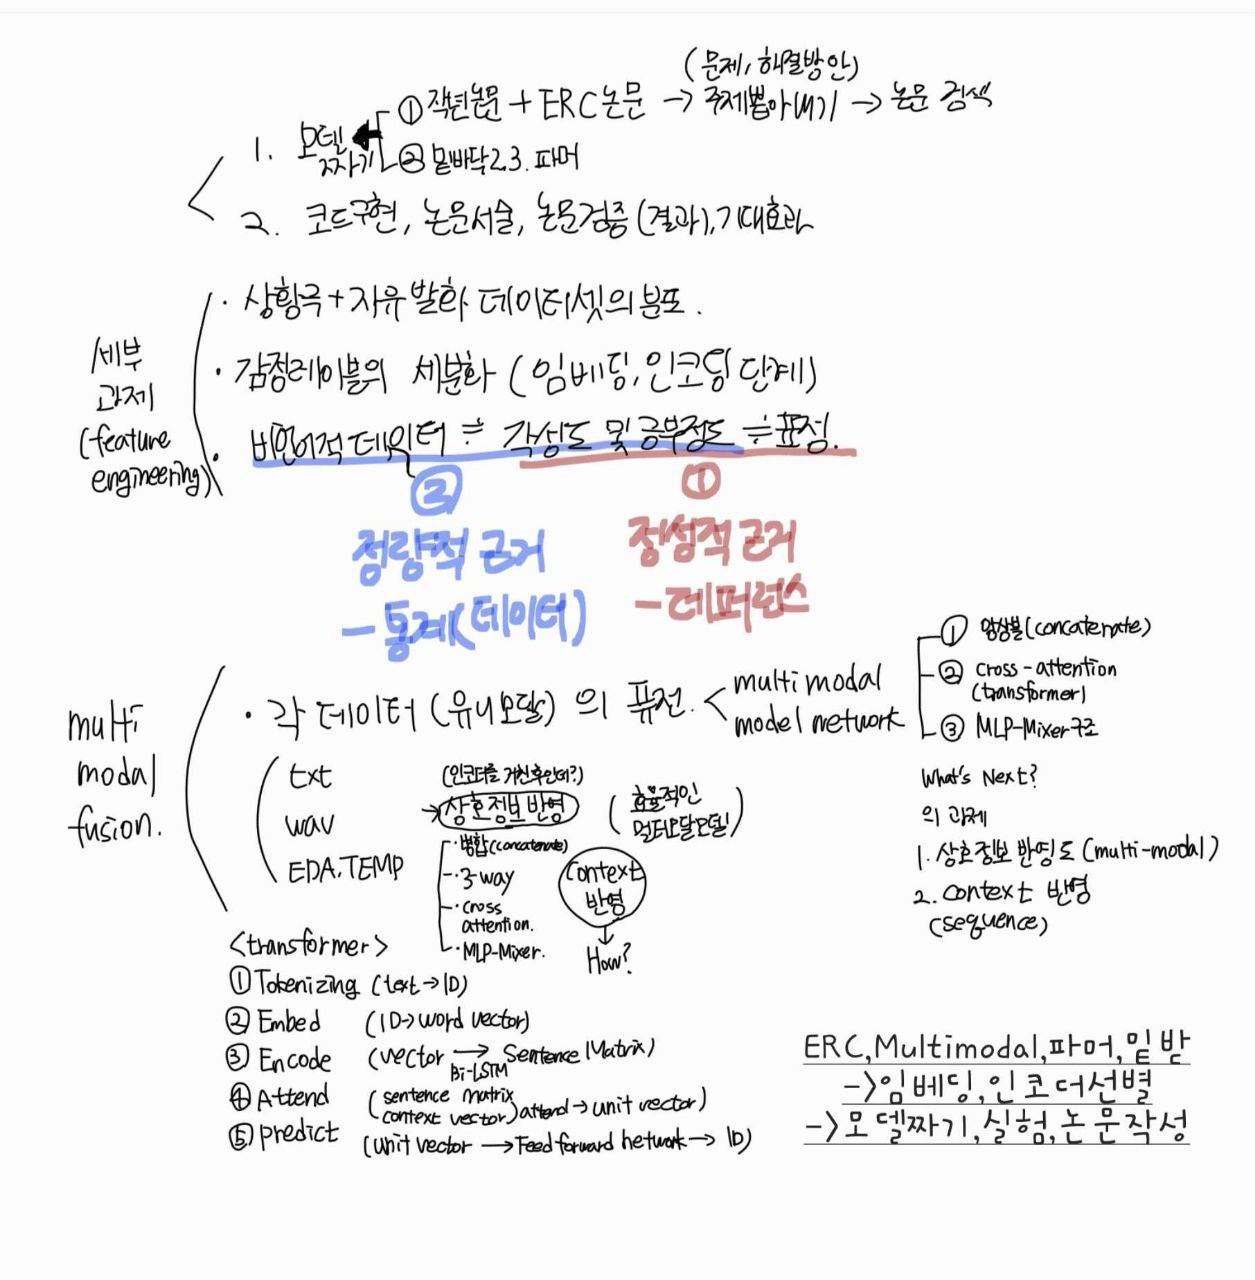 (문제, 해결방안)
① 작년논문 + ERC논문 → 주제뽑아내기 → 논문 검색
1. 모델짜기
② 밑바닥2,3. 파머
2. 코드구현, 논문서술, 논문검증(결과), 기대효과
세부 과제 (feature engineering)
· 상황극+자유발화 데이터셋의 분포.
· 감정레이블의 세분화 (임베딩, 인코딩 단계)
· 비언어적데이터 ⇌ 각성도 및 긍부정도 ⇌ 표정.
② 정량적 근거 - 통계(데이터)
① 정성적 근거 - 레퍼런스
multi modal fusion.
· 각 데이터(유니모달)의 퓨전.
multimodal
model network
① 앙상블(concatenate)
② cross-attention (transformer)
③ MLP-Mixer구조
txt
wav
EDA.TEMP
(인코더를 거친후인데?)
→ 상호정보 반영
(효율적인 멀티모달모델)
· 병합(concatenate)
· 3-way
· cross attention.
· MLP-Mixer.
Context 반영
↓
How?
What's Next?
의 과제
1. 상호정보 반영도 (multi-modal)
2. context 반영 (sequence)
<transformer>
① Tokenizing (text→ID)
② Embed (ID→word vector)
③ Encode (vector → Bi-LSTM Sentence Matrix)
④ Attend (sentence matrix context vector) attend → unit vector)
⑤ predict (unit vector → Feed forward network → ID)
ERC,Multimodal,파머,밑밭
->임베딩,인코더선별
->모델짜기,실험,논문작성